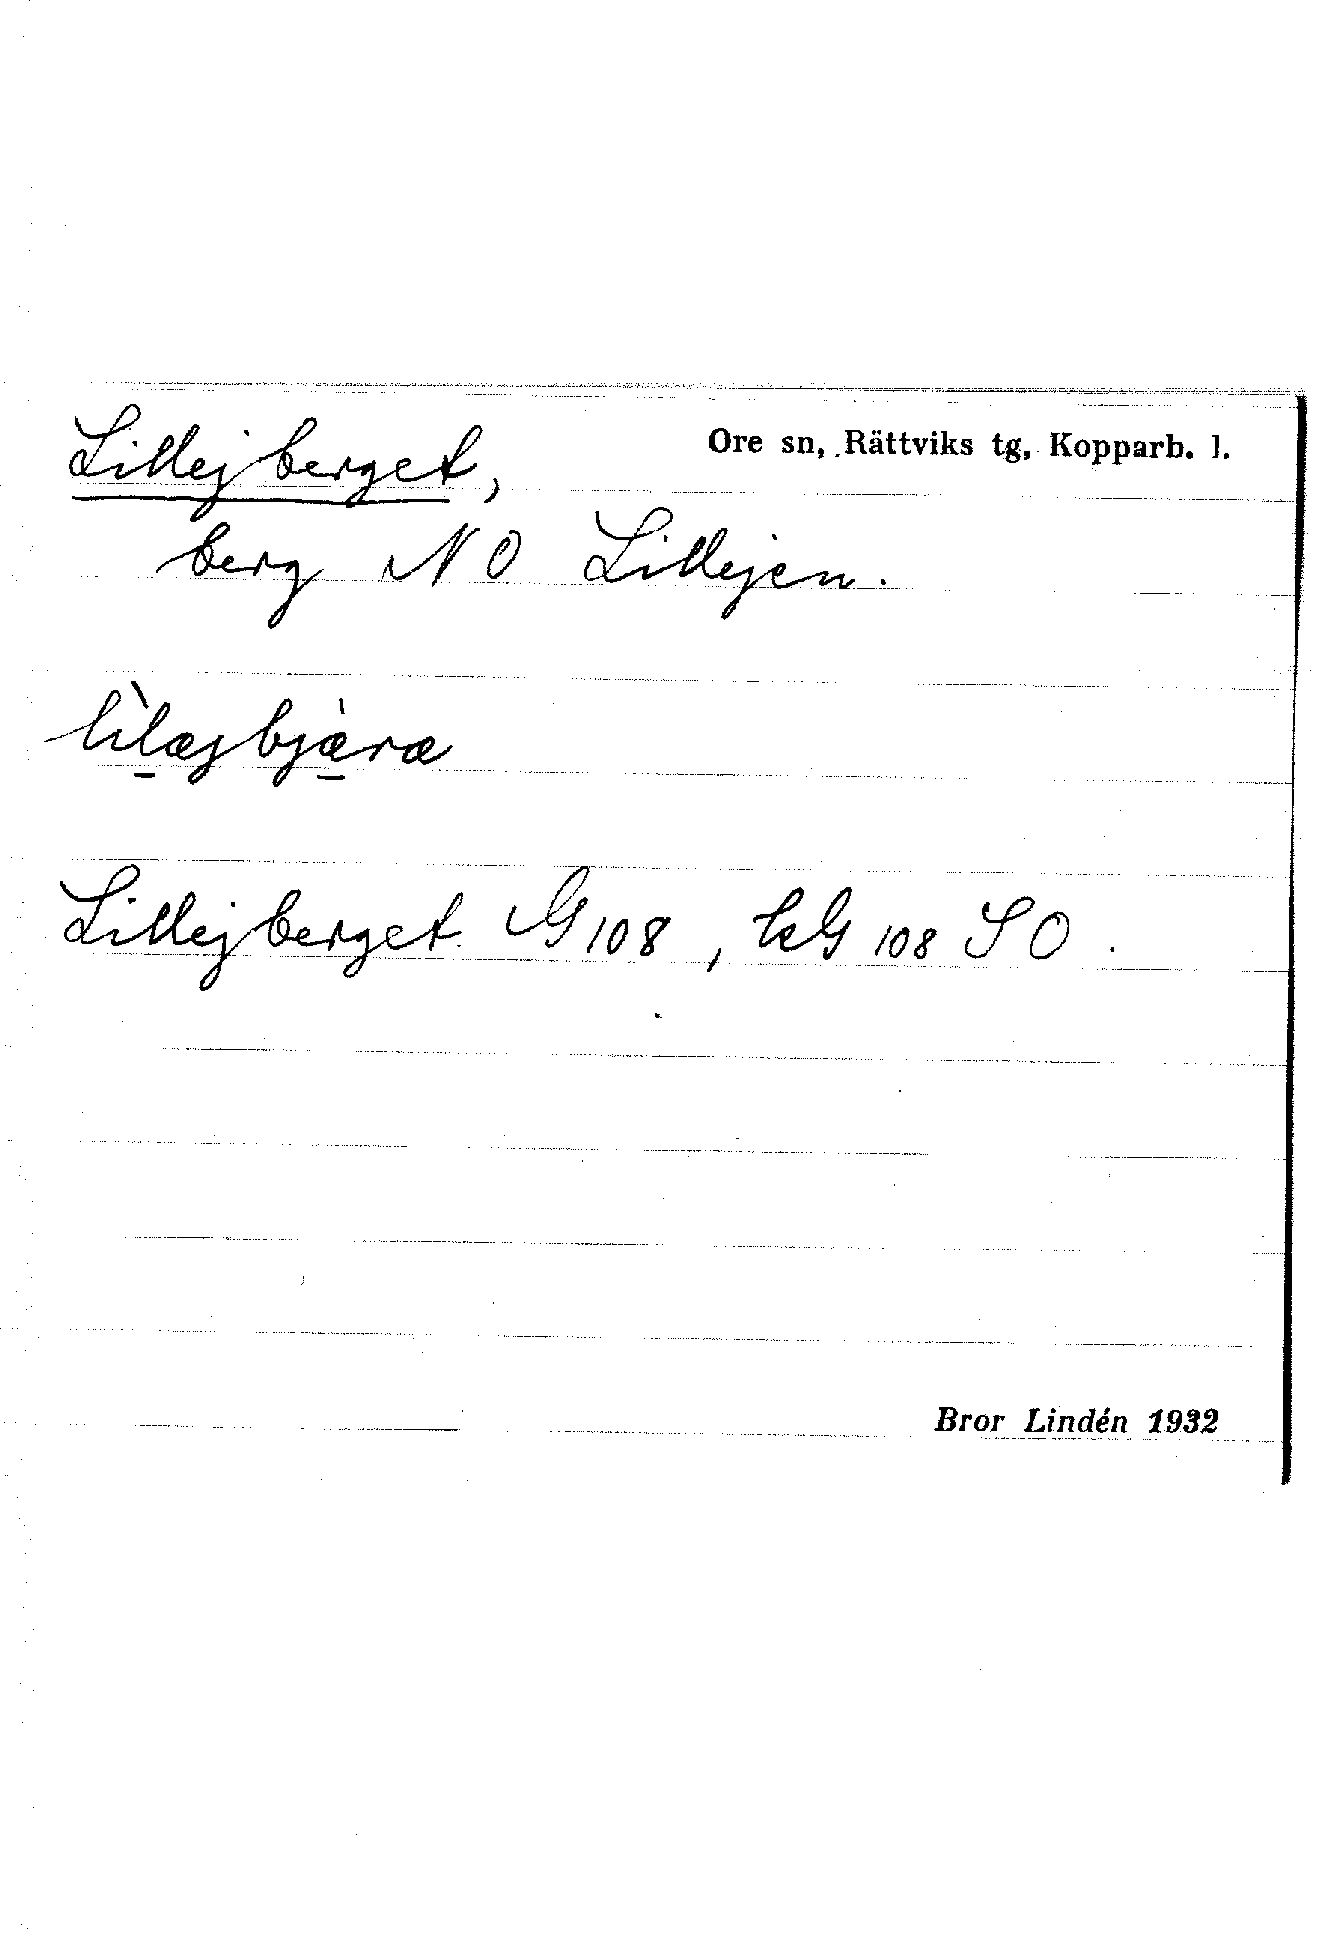 Lillejberget,
Ore sn, Rättviks tg, Kopparb. l.
berg NO Lillejen.
lìlæjbjæ̀ræ
Lillejberget G 108, hG 108 SO.
Bror Lindén 1932